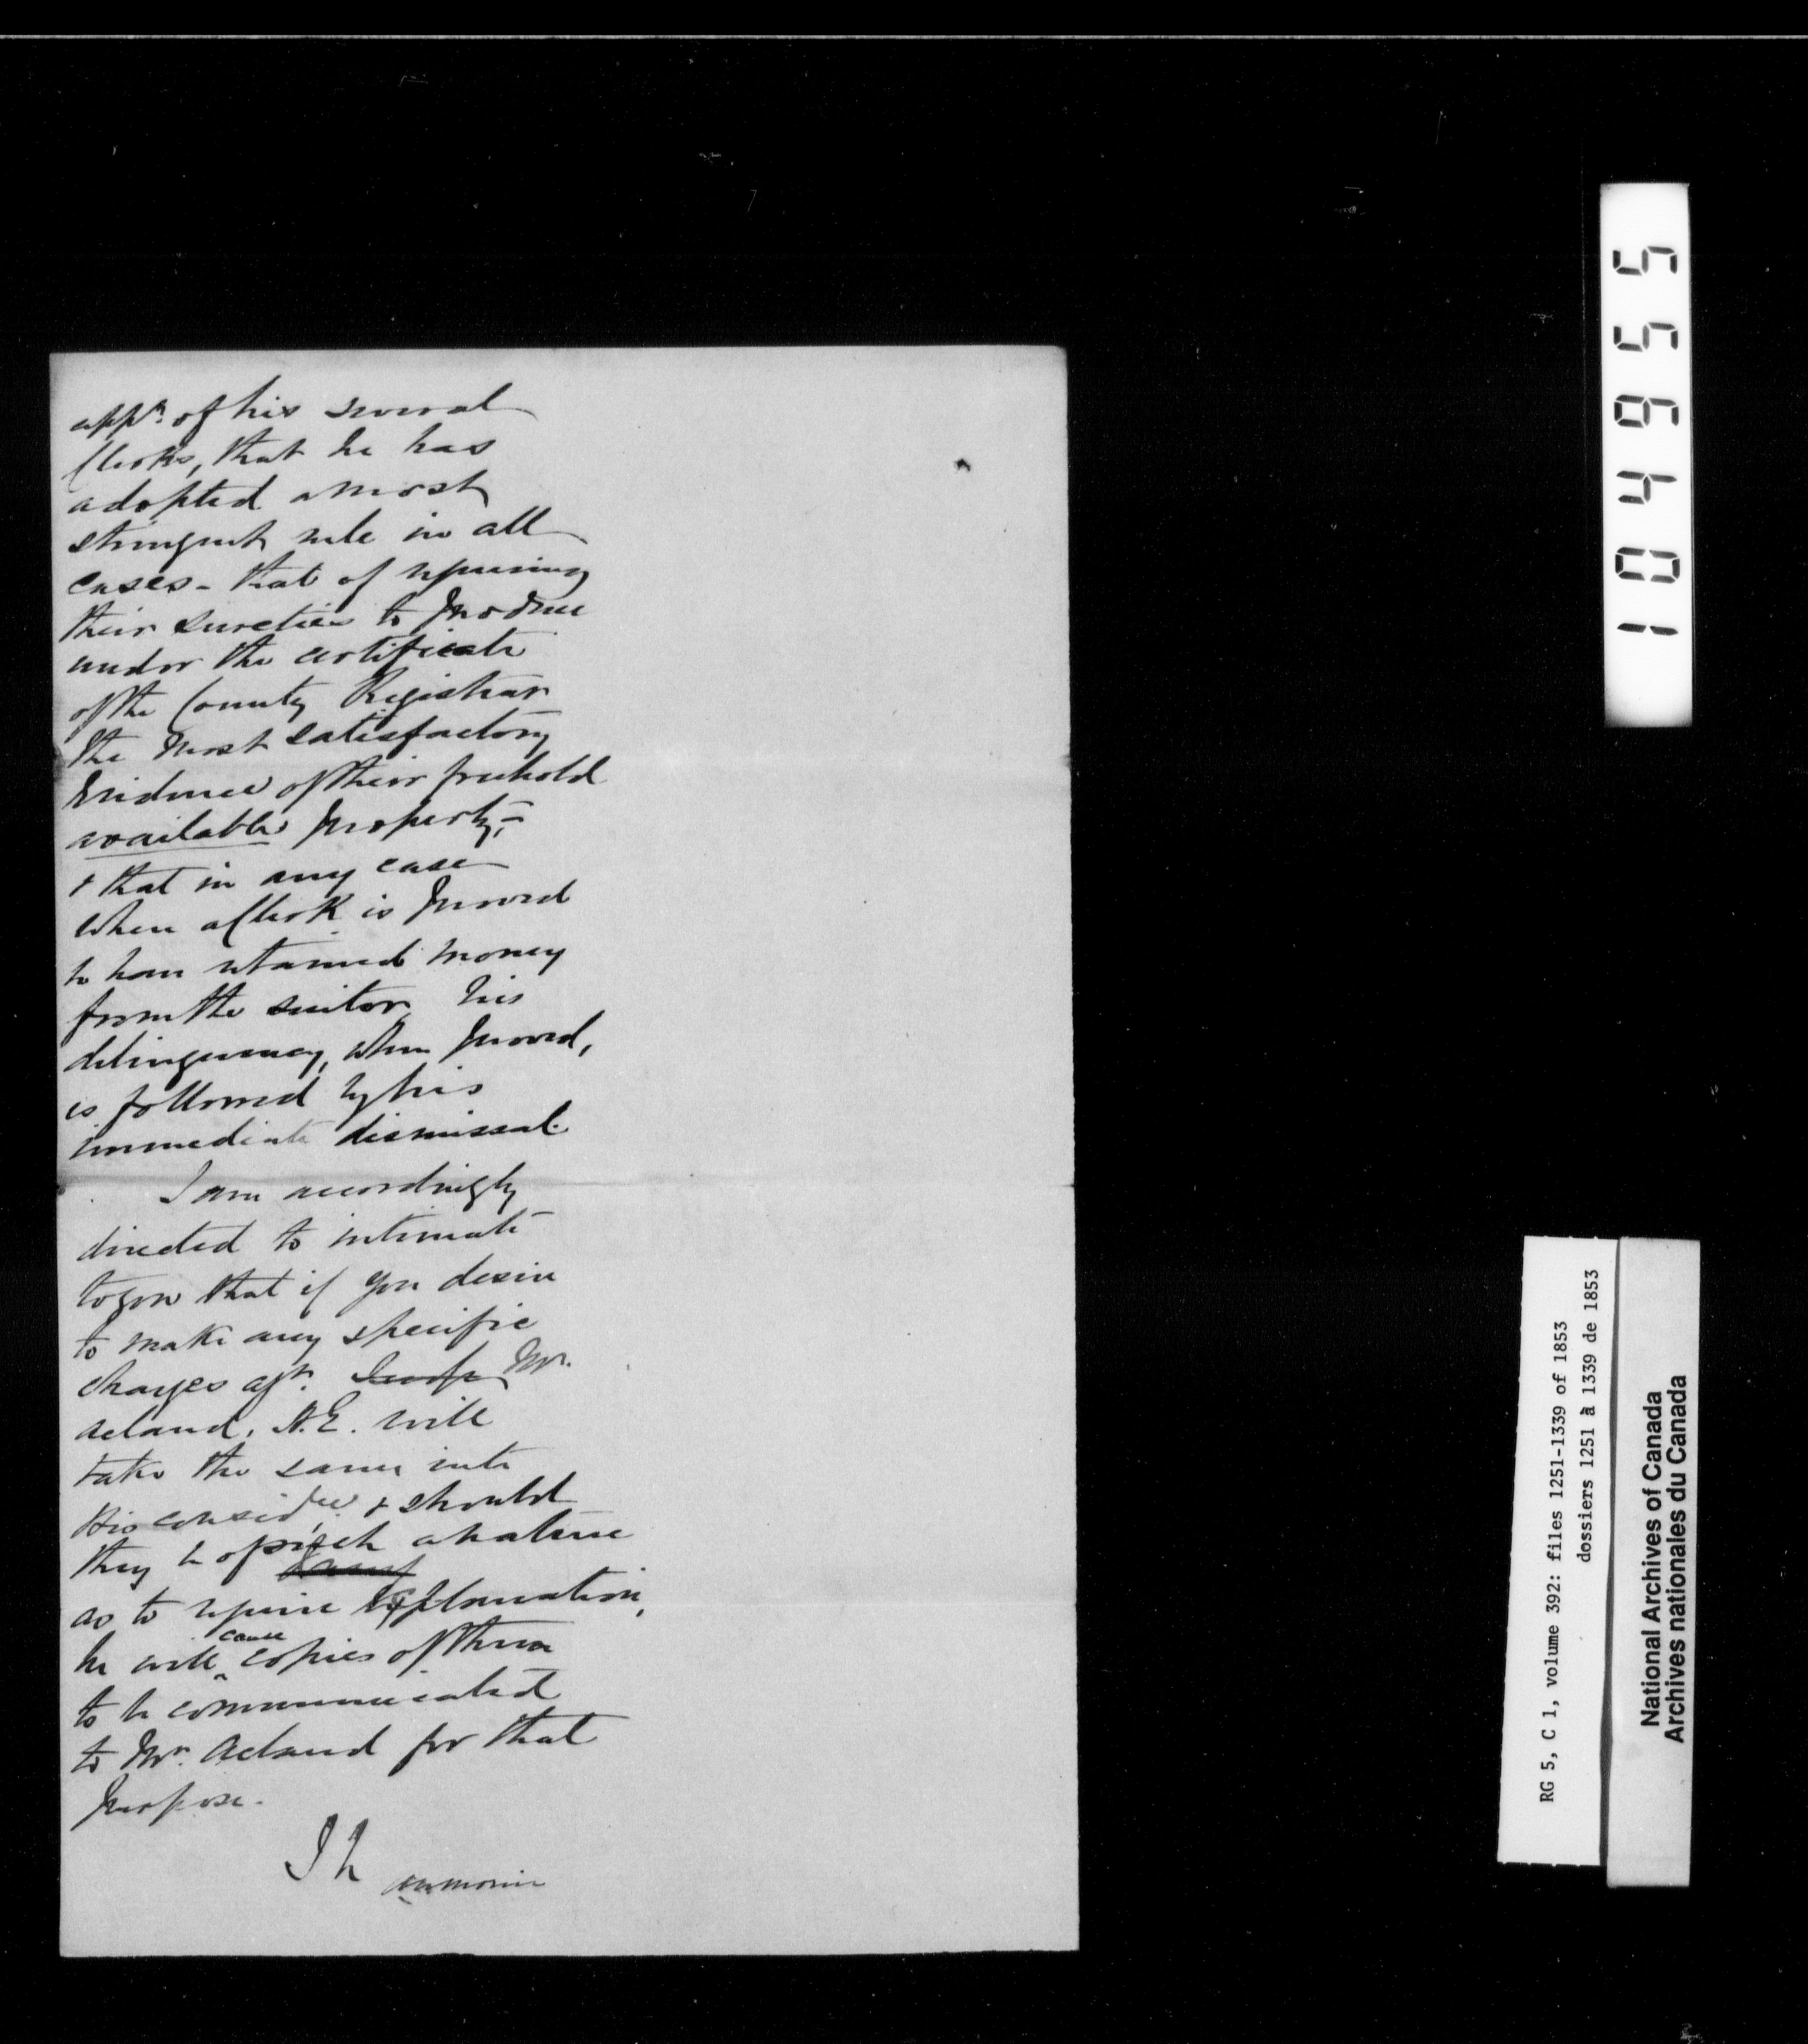 appt. of his several
Clerks, that he has
adopted a most
stringent rule in all
cases - that of requiring
their sureties to produce
under the certificate
of the County Registrar
the most satisfactory
Evidence of their freehold
available property, -
& that in any case
when a Clerk is proved
to have retained money
from the suitor his
delinquency, when proved,
is followed by his
immediate dismissal.
I am accordingly
directed to intimate
to you that if you desire
to make any specific
charges agt. Mr.
Acland, H.E. will
take the same into
His considn. & should
they be of such a nature
as to require explanation,
he will cause copies of them
to be communicated
to Mr. Acland for that
purpose.
I h
104955
RG 5, C 1, volume 392: files 1251-1339 of 1853
dossiers 1251 à 1339 de 1853
National Archives of Canada
Archives nationales du Canada